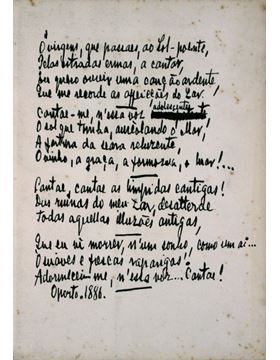 Ó virgens, que passaes, ao Sol-poente,
Pelas estradas ermas, a cantar,
Eu quero ouvir uma canção ardente
Que me recorde as afflicções do Lar!
Cantae-me, n'essa voz
adolescente
O sol que tomba, aureolando o Mar,
A fartura da seara reluzente,
O vinho, a graça, a formosura, o luar!...
Cantae, cantae as limpidas cantigas!
Das ruinas do meu Lar desatterae
Todas aquellas illusões antigas,
Que eu vi morrer, n'um sonho, como um ai...
Ó suaves e frescas raparigas!
Adormecei-me, n'essa voz... Cantae!
Oporto. 1886.